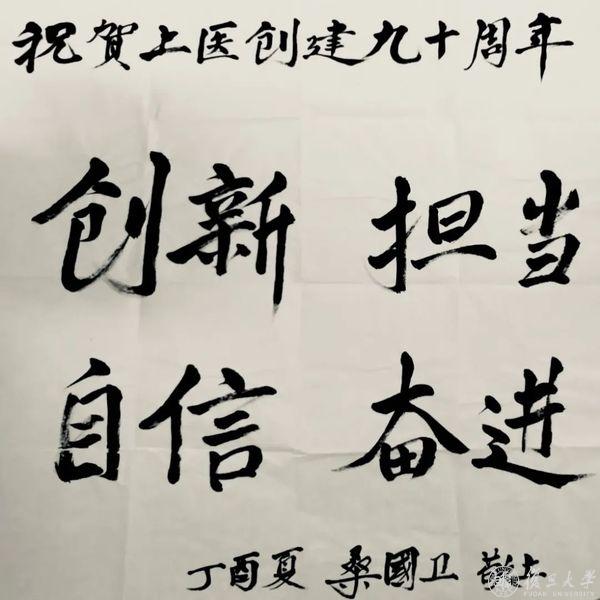 祝贺上医创建九十周年
创新 担当
自信 奋进
丁酉夏 桑國卫
復旦大學
FUDAN UNIVERSITY